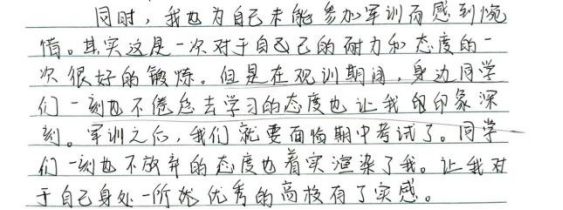 同时，我也为自己未能参加军训而感到惋
惜。其实这是一次对于自己的耐力和态度的一
次很好的锻炼。但是在观训期间，身边同学
们一刻也不倦怠去学习的态度也让我印象深
刻。军训之后，我们就要面临期中考试了。同学
们一刻也不放弃的态度也着实渲染了我。让我对
于自己身处一所优秀的高校有了实感。